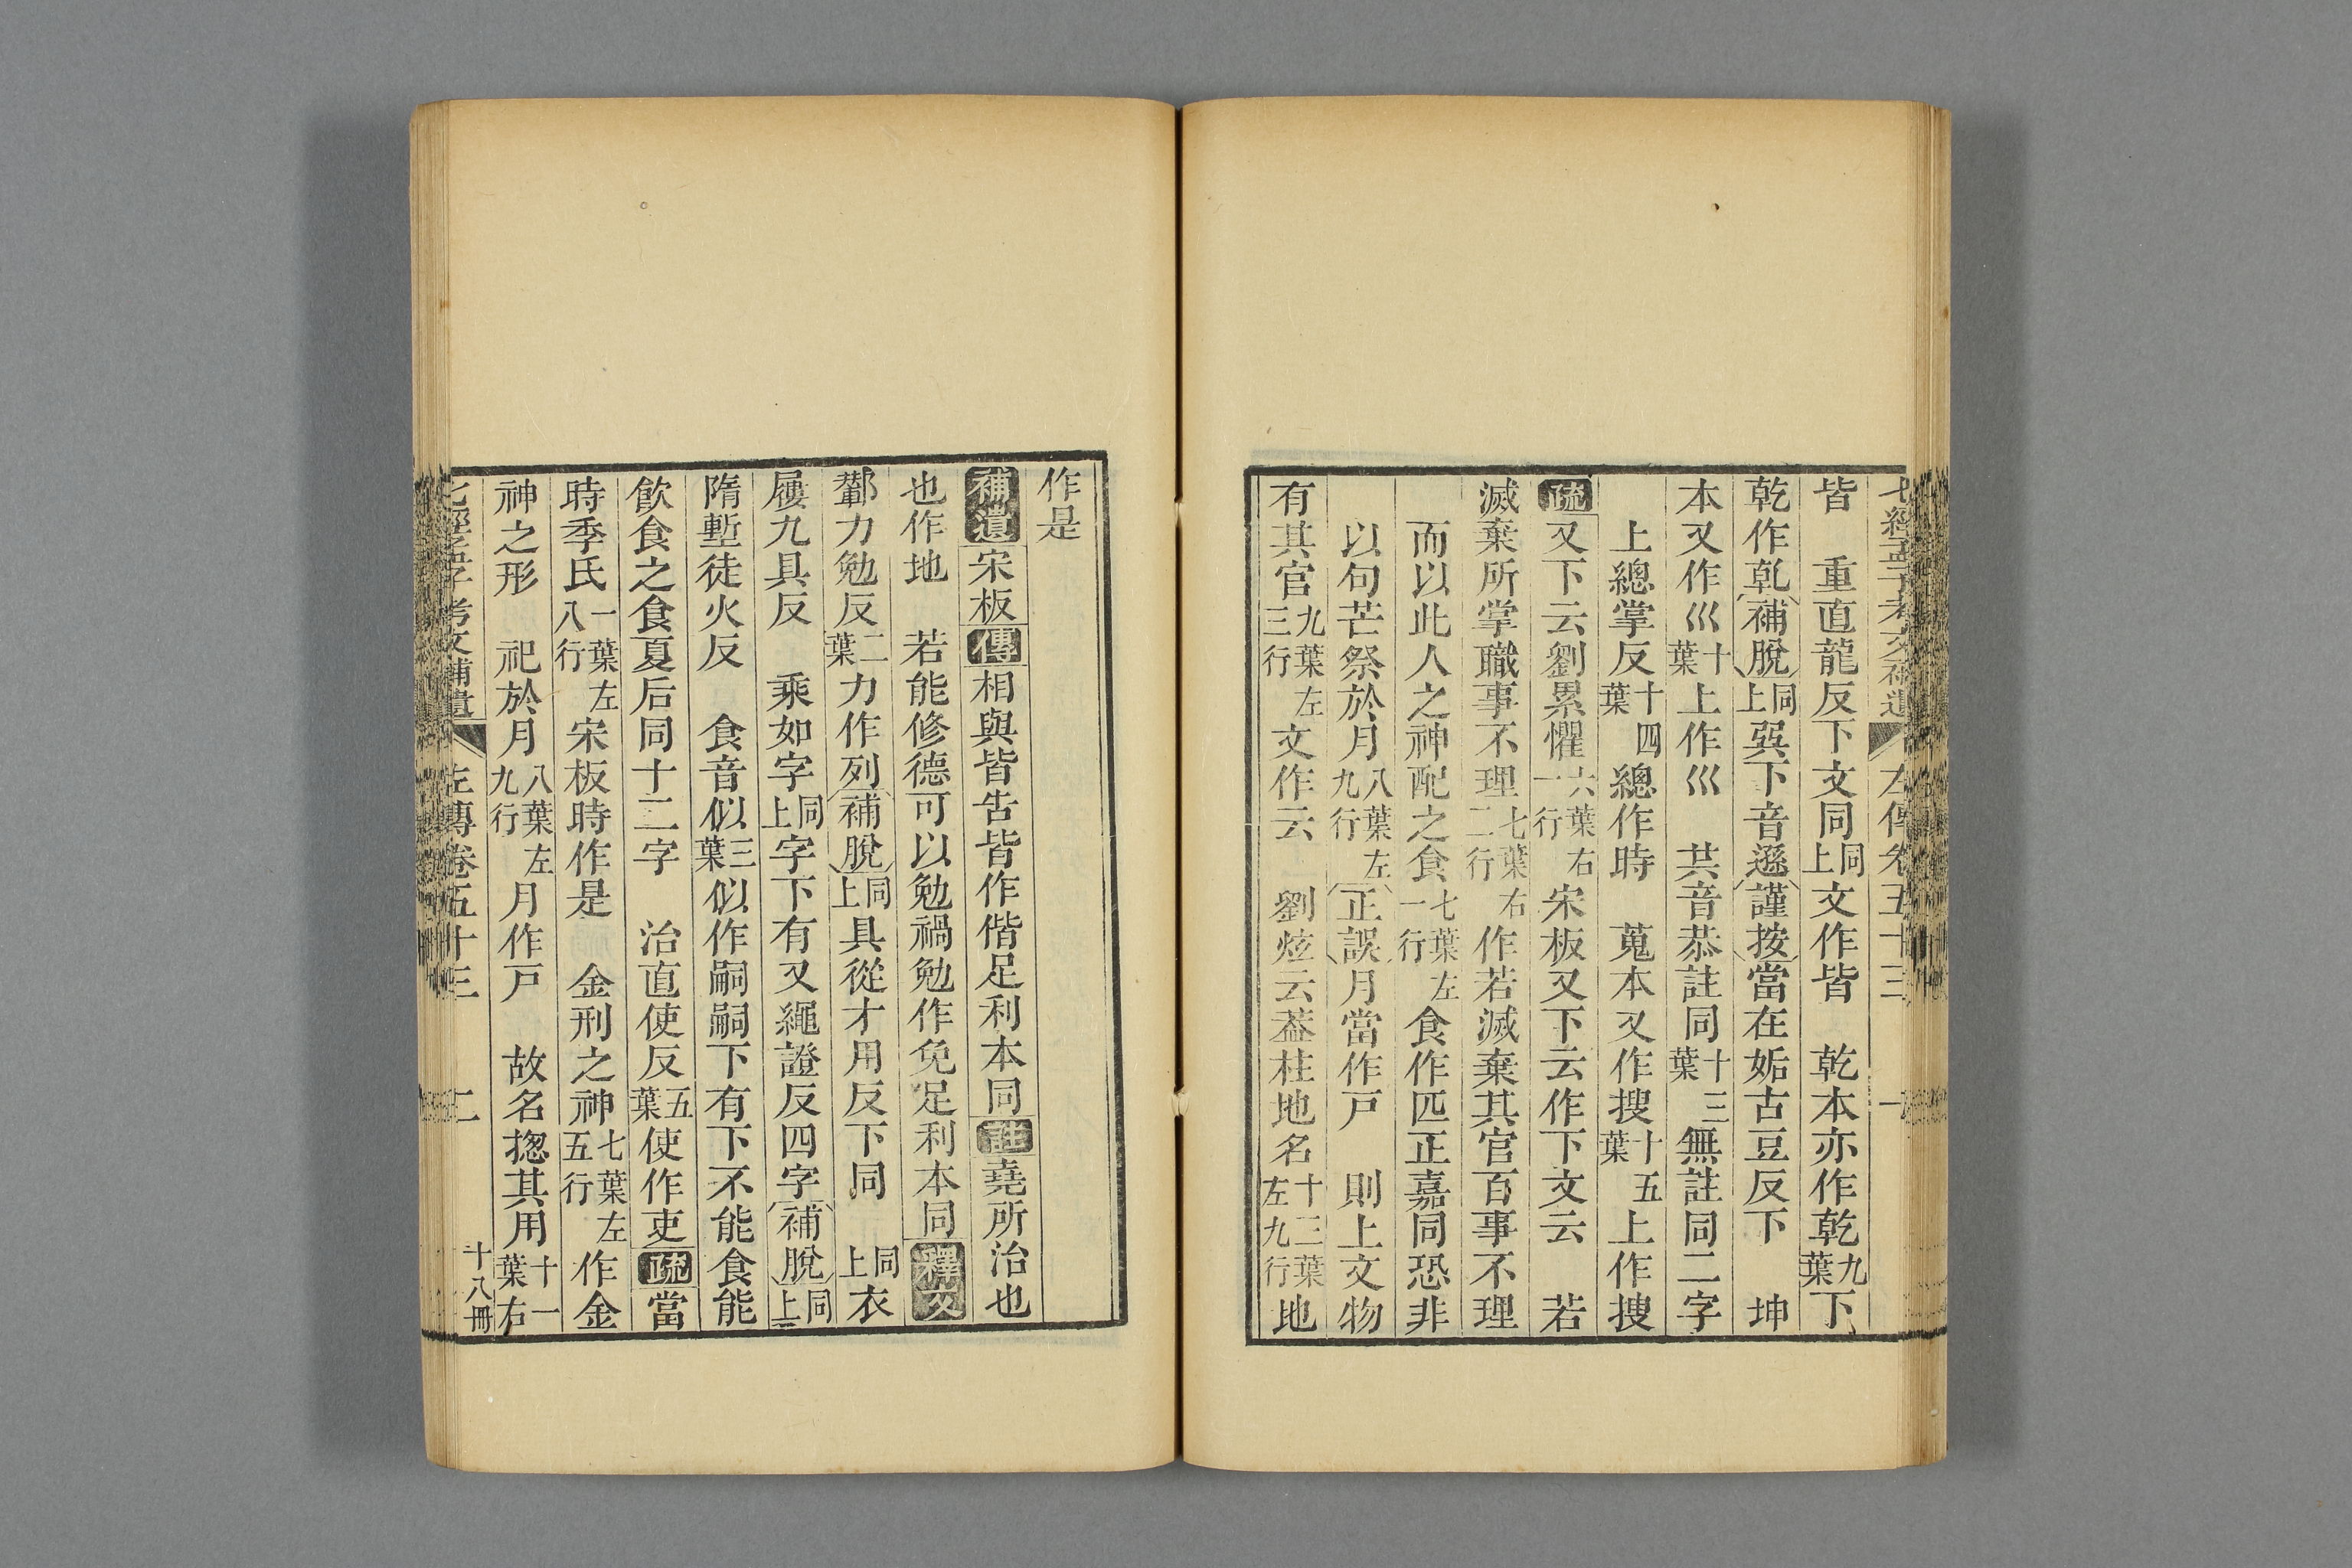 七經孟子考文補遺 左傳卷五十三
皆 重直龍反下文同同上文作皆 乾本亦作乾九葉下
乾作乹補脫同上巽下音遜謹按當在姤古豆反下 坤
本又作巛十葉上作巛 共音恭註同十三葉無註同二字
上總掌反十四葉總作時 蒐本又作搜十五葉上作搜
疏又下云劉累懼六葉右一行宋板又下云作下文云 若
滅棄所掌職事不理七葉右二行作若滅棄其官百事不理
而以此人之神配之食七葉左一行食作匹正嘉同恐非
以句芒祭於月八葉左九行正誤月當作戸 則上文物
有其官九葉左三行文作云 劉炫云葢柱地名十三葉左九行地
作是
補遺宋板傳相與皆告皆作偕足利本同註堯所治也
也作地 若能修德可以勉禍勉作免足利本同釋文
鄻力勉反二葉力作列補脫同上具從才用反下同 同上衣
屨九具反 乘如字同上字下有又繩證反四字補脫同上
隋塹徒火反 食音似三葉似作嗣嗣下有下不能食能
飲食之食夏后同十二字 治直使反五葉使作吏疏當
時季氏一葉左八行宋板時作是 金刑之神七葉左五行作金
神之形 祀於月八葉左九行月作戸 故名揔其用十一葉右
七經孟子考文補遺 左傳卷五十三 二 十八冊